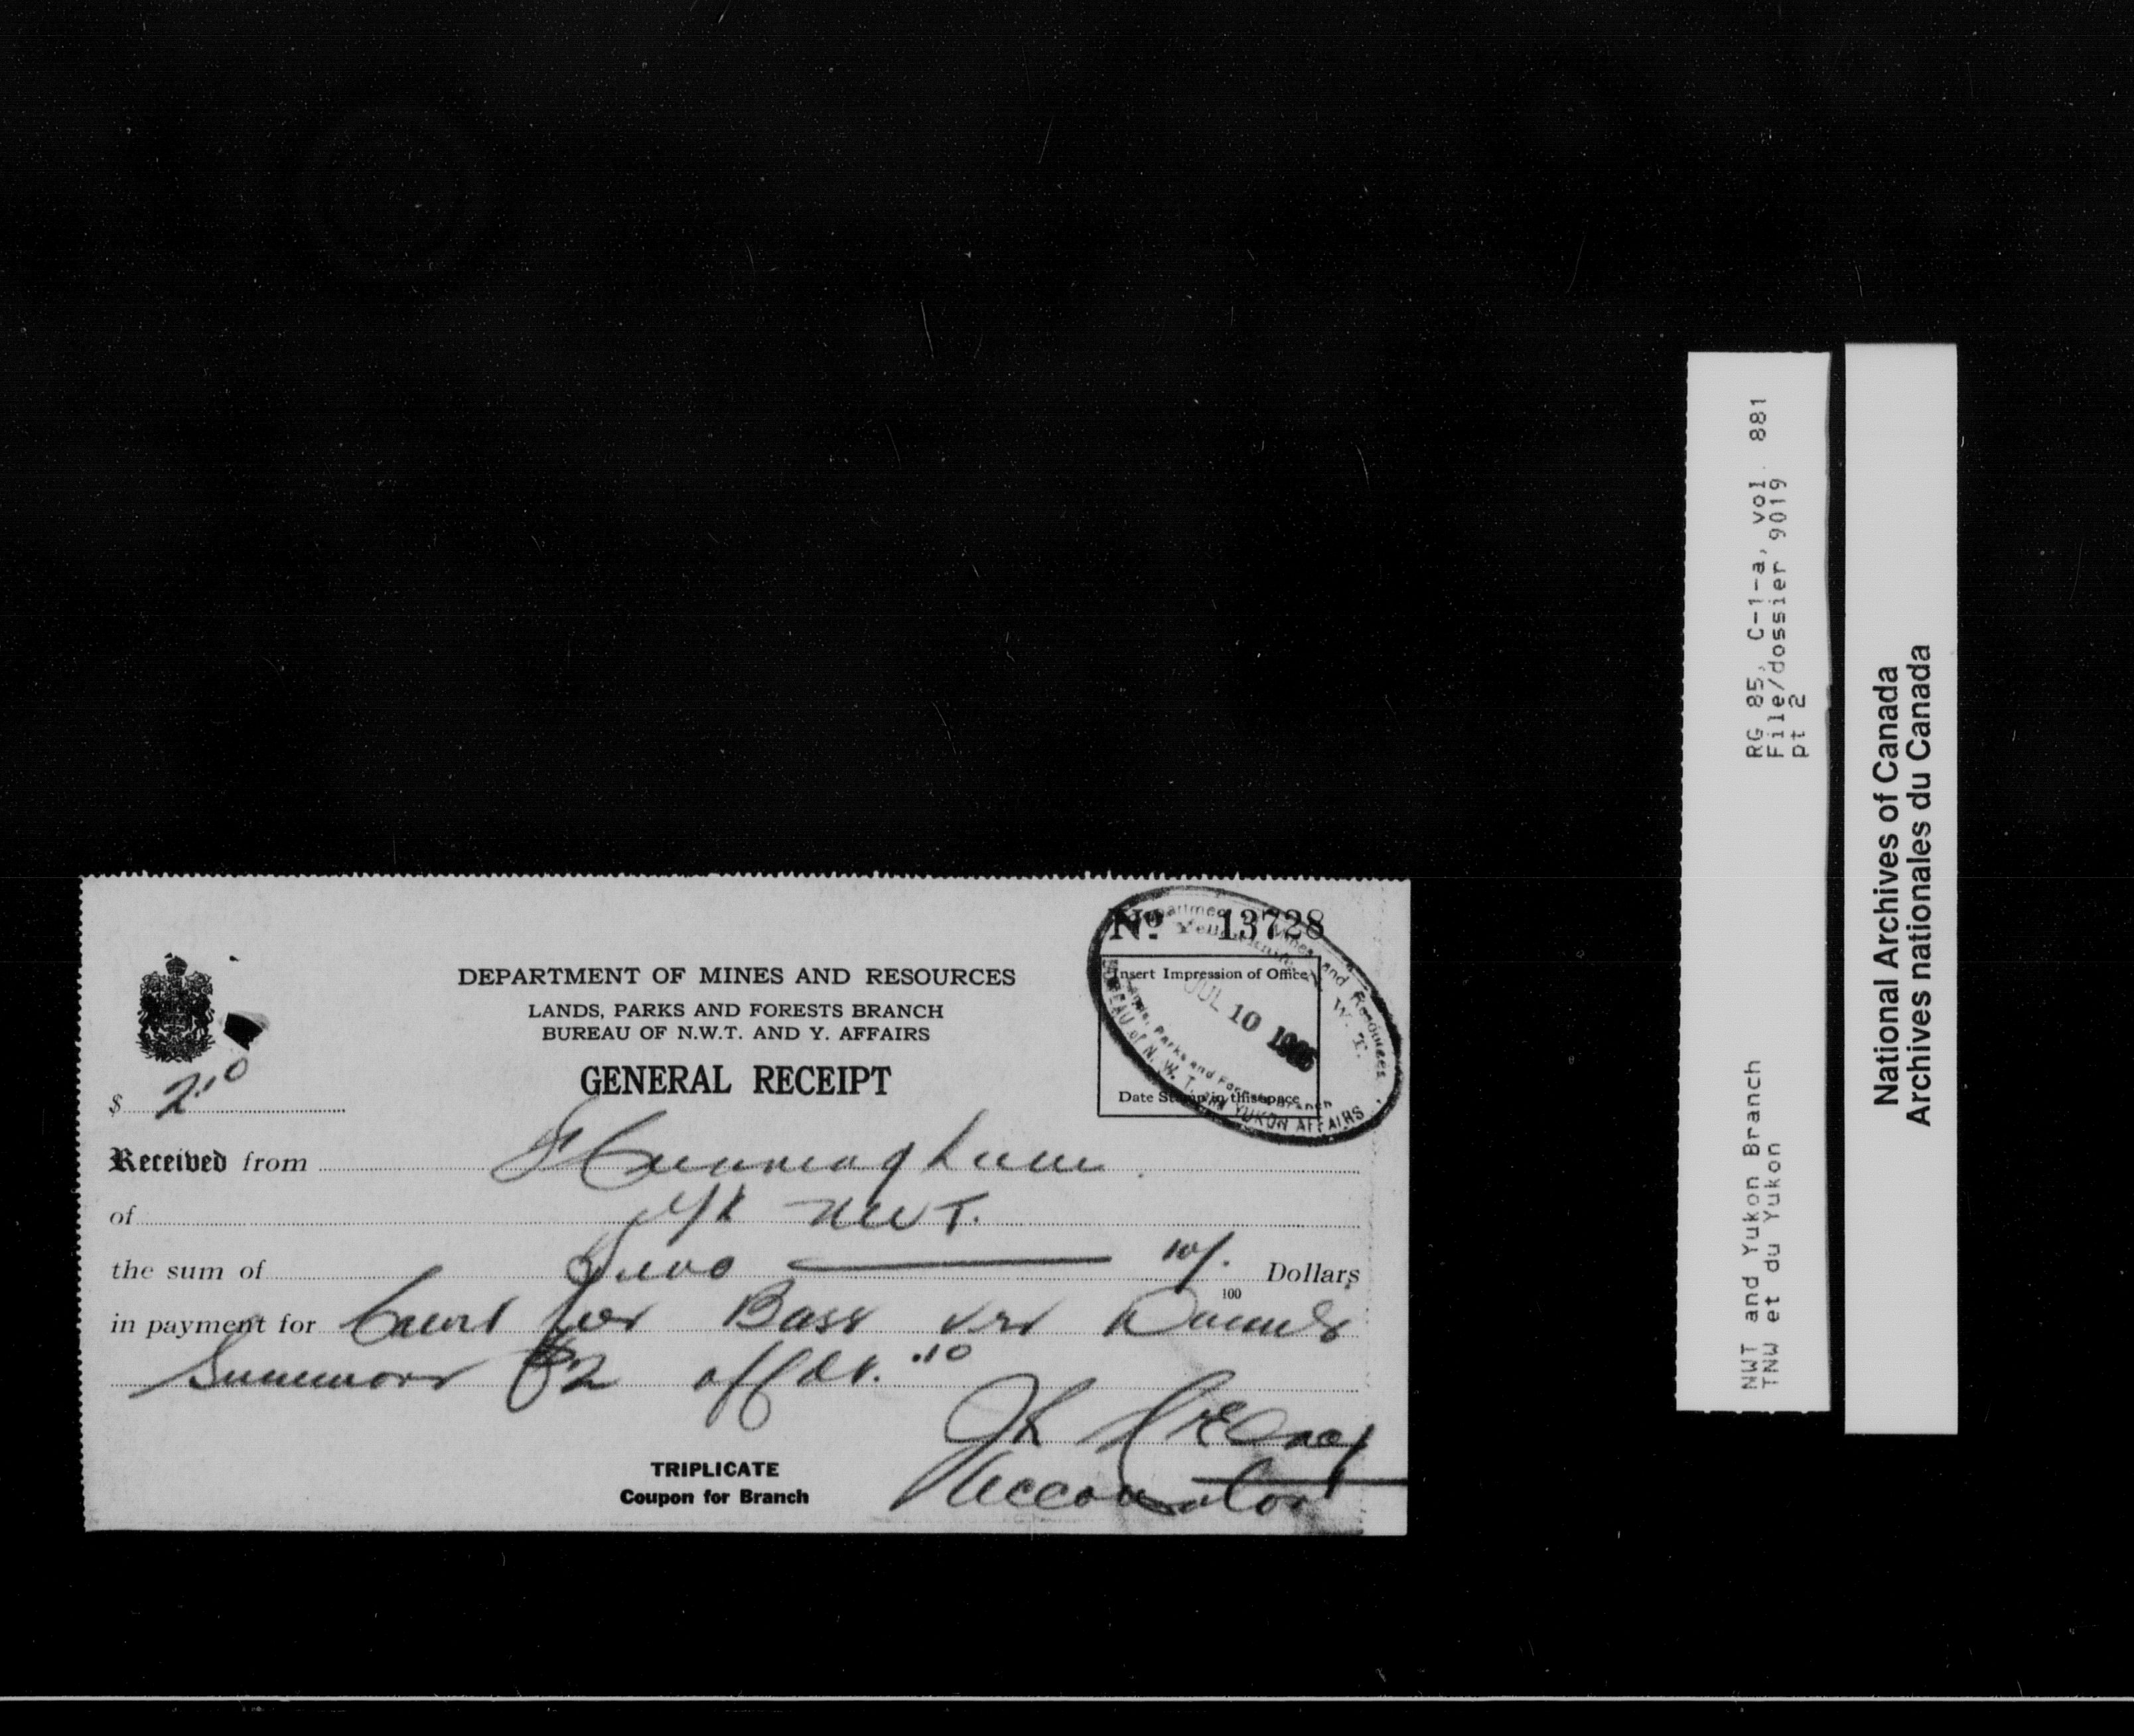 Nº 13728
DEPARTMENT OF MINES AND RESOURCES
LANDS, PARKS AND FORESTS BRANCH
BUREAU OF N.W.T. AND Y. AFFAIRS
GENERAL RECEIPT
Insert Impression of Office
Department of Mines and Resources
Yellowknife, N. W. T.
JUL 10
Lands, Parks and Forests Branch
BUREAU of N. W. T. and YUKON AFFAIRS
Date Stamp in this space
$ 2.10
Received from Cunningham
of Y/K NWT.
the sum of Two 10/100 Dollars
in payment for Court fees Bass vs
Summons $2 .10
Accountant
TRIPLICATE
Coupon for Branch
RG 85, C-1-a, vol. 881
File/dossier 9019
pt 2
NWT and Yukon Branch
TNW et du Yukon
National Archives of Canada
Archives nationales du Canada